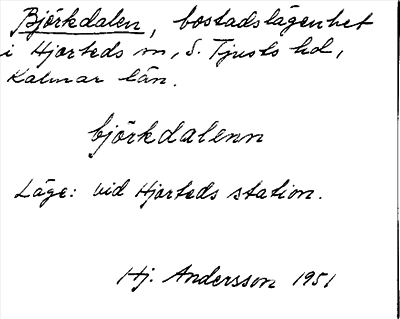 Björkdalen, bostadslägenhet
i Hjorteds sn, S. Tjusts hd,
Kalmar län.
björkdalenn
Läge: vid Hjorteds station.
Hj. Andersson 1951